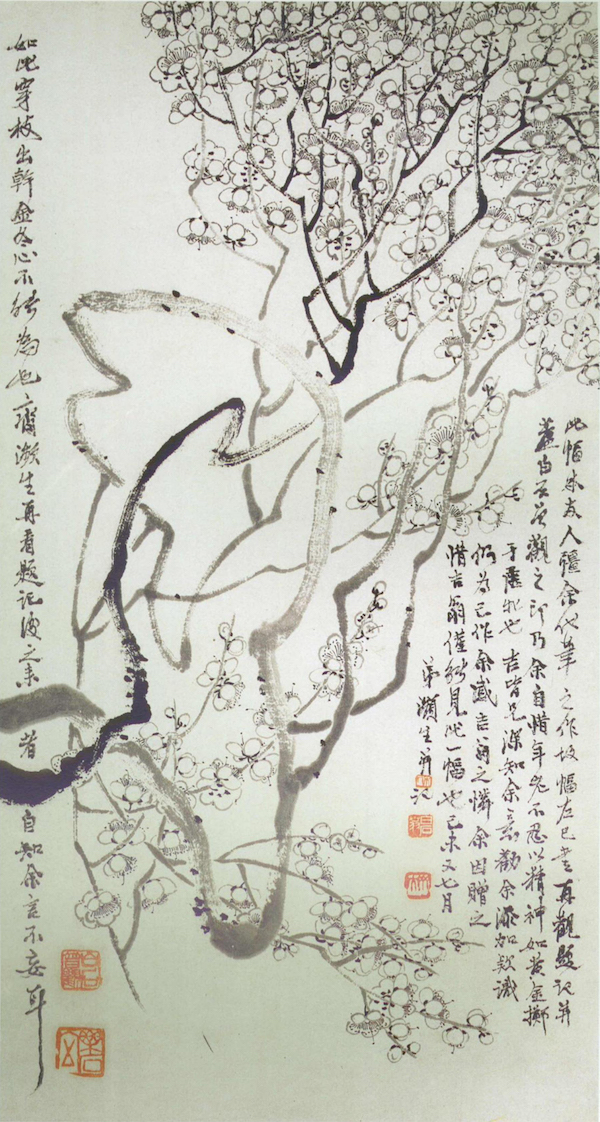 此幅友人彊余代筆之作故幅左已書再觀題記并
蓋白石曾觀之印乃余自惜年老不忍以精神如黃金擲
于虛牝也吉皆兄深知余意勸余添加款識
仍為己作余感吉翁之憐余因贈之
惜吉翁僅能見此一幅也己未又七月
弟瀕生并記
如此穿枝出幹金冬心不能為也齊瀕生再看題記後之來者自知余言不妄耳